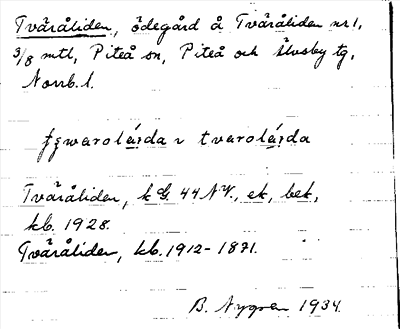 Tväråliden, ödegård å Tväråliden nr 1,
3/8 mtl, Piteå sn, Piteå och Älvsby tg,
Norrb. l.
tvarolí̱da
Tväråliden, k G. 44 NV., ek, bet,
kb. 1928.
Tväråliden, kb. 1912-1871.
B. Nygren 1934.